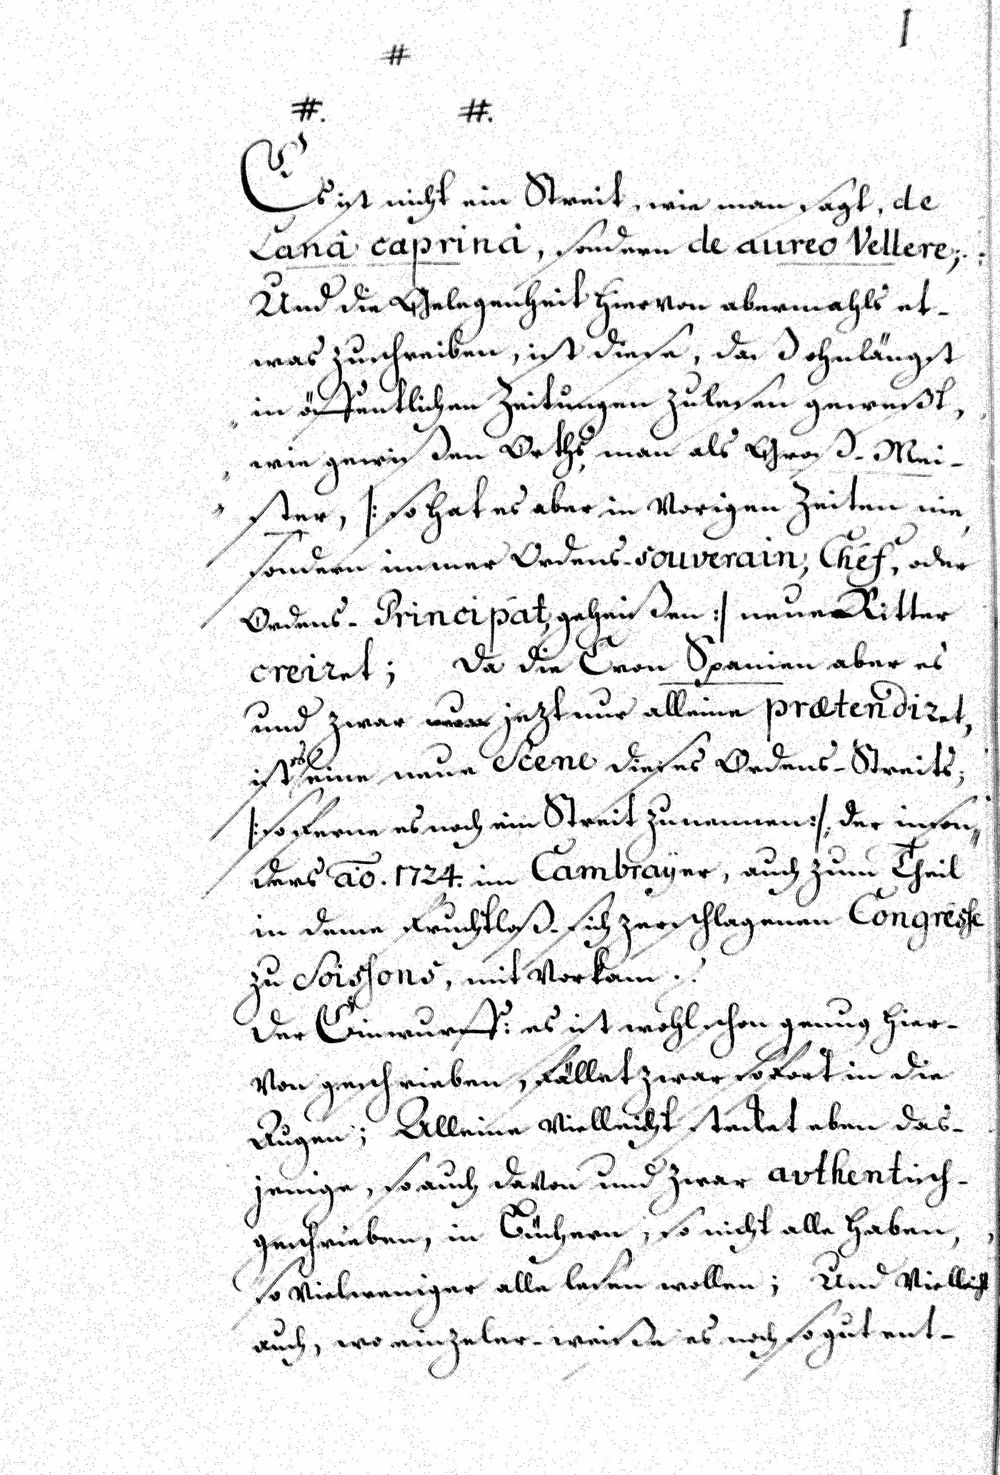 1
#
#. #.
Es ist nicht ein Streit, wie man sagt, de
Lanâ caprinâ, sondern de aureo Vellere;
Und die Gelegenheit hiervon abermahls et-
was zuschreiben, ist diese, daß ohnlängst
in öffentlichen Zeitungen zulesen geweßt,
wie gewißen Orths, man als Groß-Mei-
ster, /: so hat es aber in Vorigen Zeiten nie,
sondern immer Ordens-souverain, Chéf, oder
Ordens-Principat, geheißen :/ neue Ritter
creiret; Da die Cron Spanien aber es
und zwar jezt nur alleine prætendiret,
ist es eine neue Scene dieses Ordens-Streits,
/: so Ferne es noch ein Streit zunennen :/, der inson-
ders aõ. 1724. im Cambraÿer, auch zum Theil
in deme Fruchtloß-sich zerschlagenen Congresse
zu Soissons, mit Vorkam.
Der Einwurff: es ist wohl schon genug hier-
Von geschrieben, Fället zwar so Fort in die
Augen; Alleine Vielleicht stecket eben das-
jenige, so auch davon und zwar avthentisch-
geschrieben, in Büchern, so nicht alle haben,
so Vielweniger alle lesen wollen; Und Vielleicht
auch, wo einzeler-weiße es noch so gut ent-